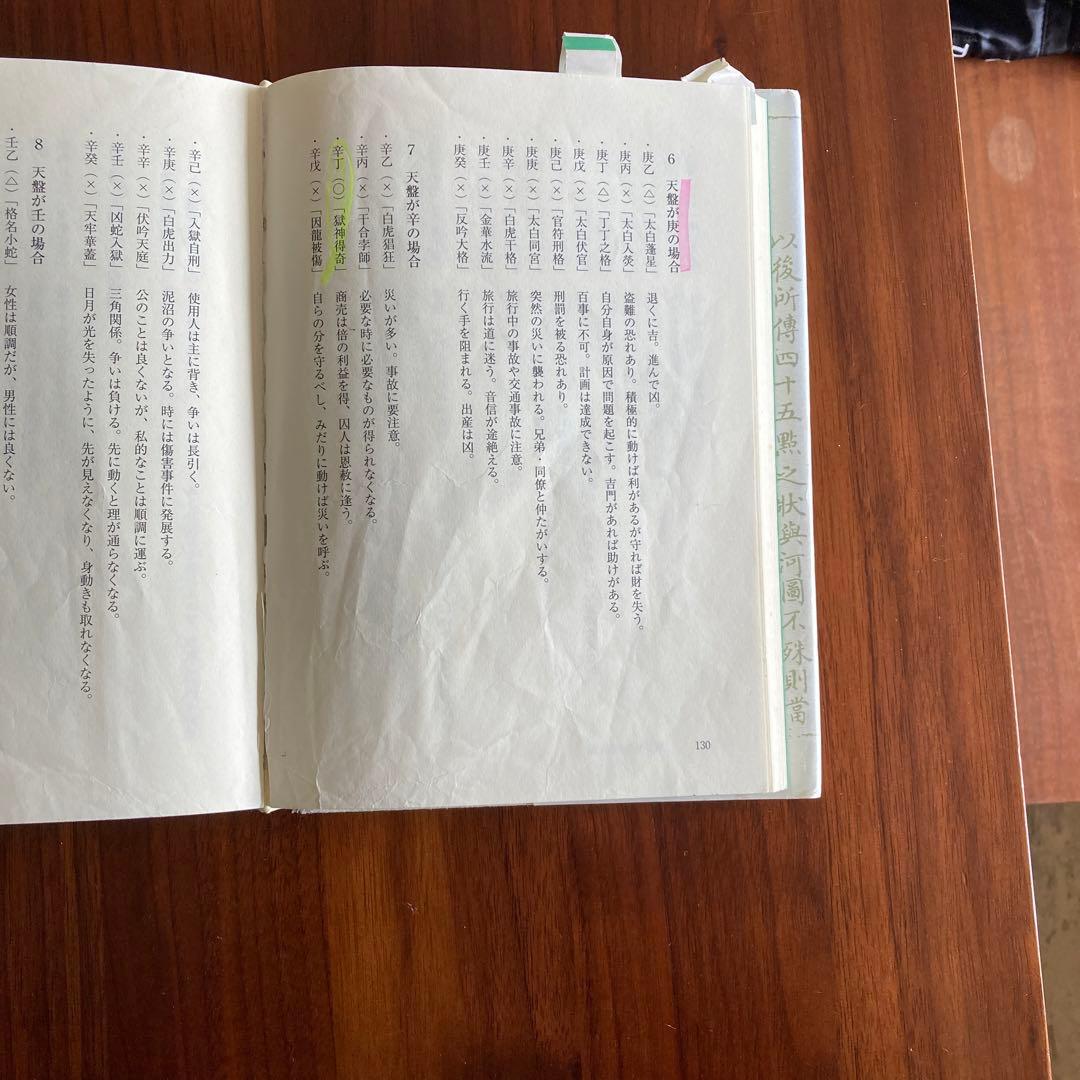 6 天盤が庚の場合
・庚乙（△）「太白蓬星」 退くに吉。進んで凶。
・庚丙（×）「太白入熒」 盗難の恐れあり。積極的に動けば利があるが守れば財を失う。
・庚丁（△）「丁丁之格」 自分自身が原因で問題を起こす。吉門があれば助けがある。
・庚戊（×）「太白伏官」 百事に不可。計画は達成できない。
・庚己（×）「官符刑格」 刑罰を被る恐れあり。
・庚庚（×）「太白同宮」 突然の災いに襲われる。兄弟・同僚と仲たがいする。
・庚辛（×）「白虎干格」 旅行中の事故や交通事故に注意。
・庚壬（×）「金華水流」 旅行は道に迷う。音信が途絶える。
・庚癸（×）「反吟大格」 行く手を阻まれる。出産は凶。
7 天盤が辛の場合
・辛乙（×）「白虎猖狂」 災いが多い。事故に要注意。
・辛丙（×）「干合孛師」 必要な時に必要なものが得られなくなる。
・辛丁（○）「獄神得奇」 商売は倍の利益を得、囚人は恩赦に逢う。
・辛戊（×）「因龍被傷」 自らの分を守るべし、みだりに動けば災いを呼ぶ。
130
・辛己（×）「入獄自刑」 使用人は主に背き、争いは長引く。
・辛庚（×）「白虎出力」 泥沼の争いとなる。時には傷害事件に発展する。
・辛辛（×）「伏吟天庭」 公のことは良くないが、私的なことは順調に運ぶ。
・辛壬（×）「凶蛇入獄」 三角関係。争いは負ける。先に動くと理が通らなくなる。
・辛癸（×）「天牢華蓋」 日月が光を失ったように、先が見えなくなり、身動きも取れなくなる。
8 天盤が壬の場合
・壬乙（△）「格名小蛇」 女性は順調だが、男性には良くない。
以後所傳四十五點之狀與河圖不殊則當